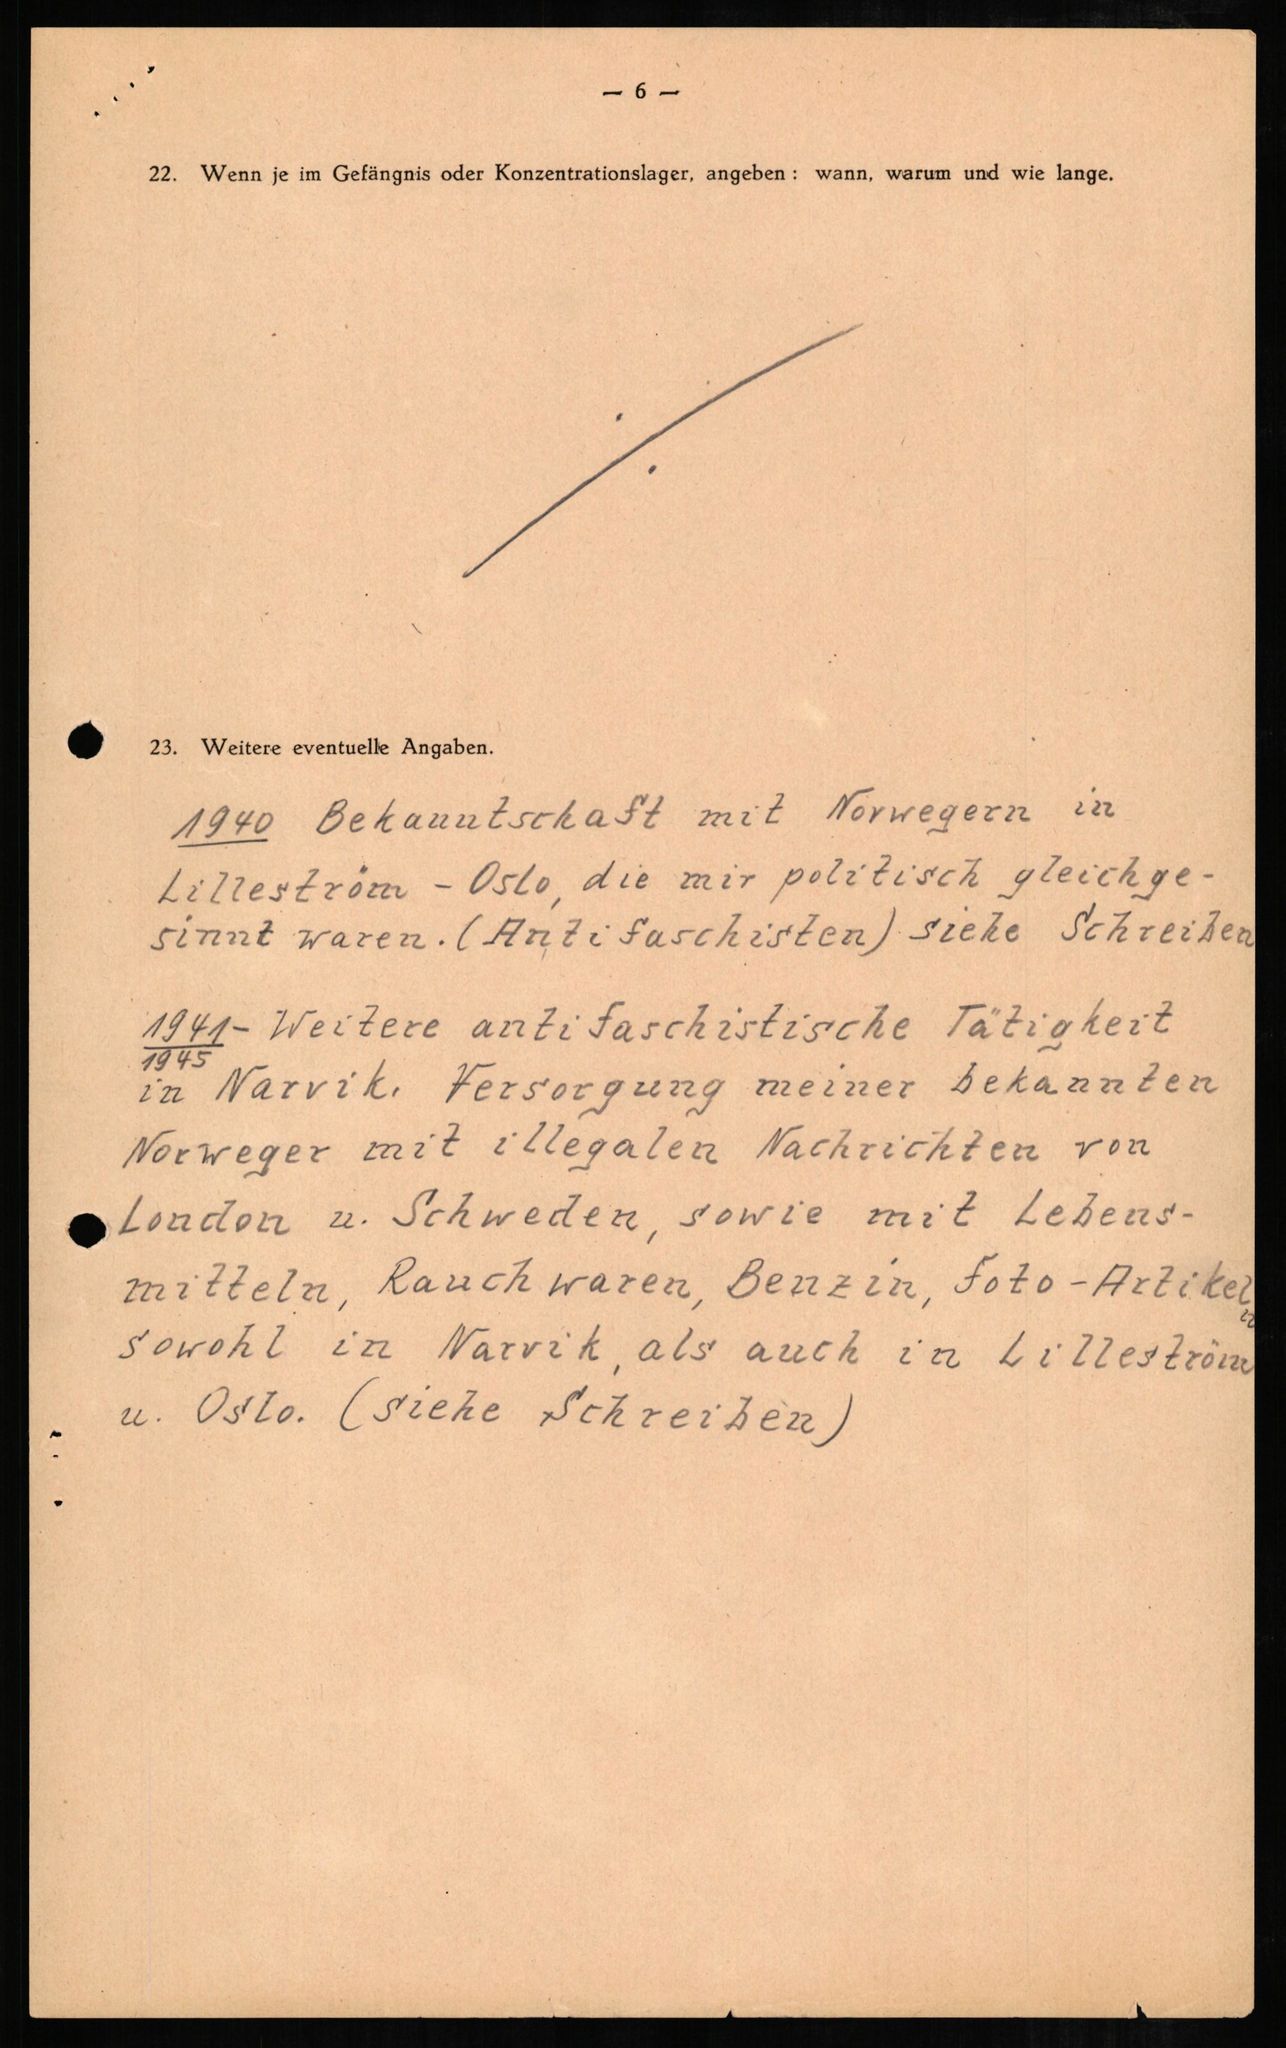 — 6 —
22. Wenn je im Gefängnis oder Konzentrationslager, angeben : wann, warum und wie lange.
23. Weitere eventuelle Angaben.
1940 Bekanntschaft mit Norwegern in
Lilleström - Oslo, die mir politisch gleichge-
sinnt waren. (Antifaschisten) siehe Schreiben
1941- Weitere antifaschistische Tätigkeit
1945
in Narvik. Versorgung meiner bekannten
Norweger mit illegalen Nachrichten von
London u. Schweden, sowie mit Lebens-
mitteln, Rauchwaren, Benzin, Foto-Artikeln
sowohl in Narvik, als auch in Lilleström
u. Oslo. (siehe Schreiben)